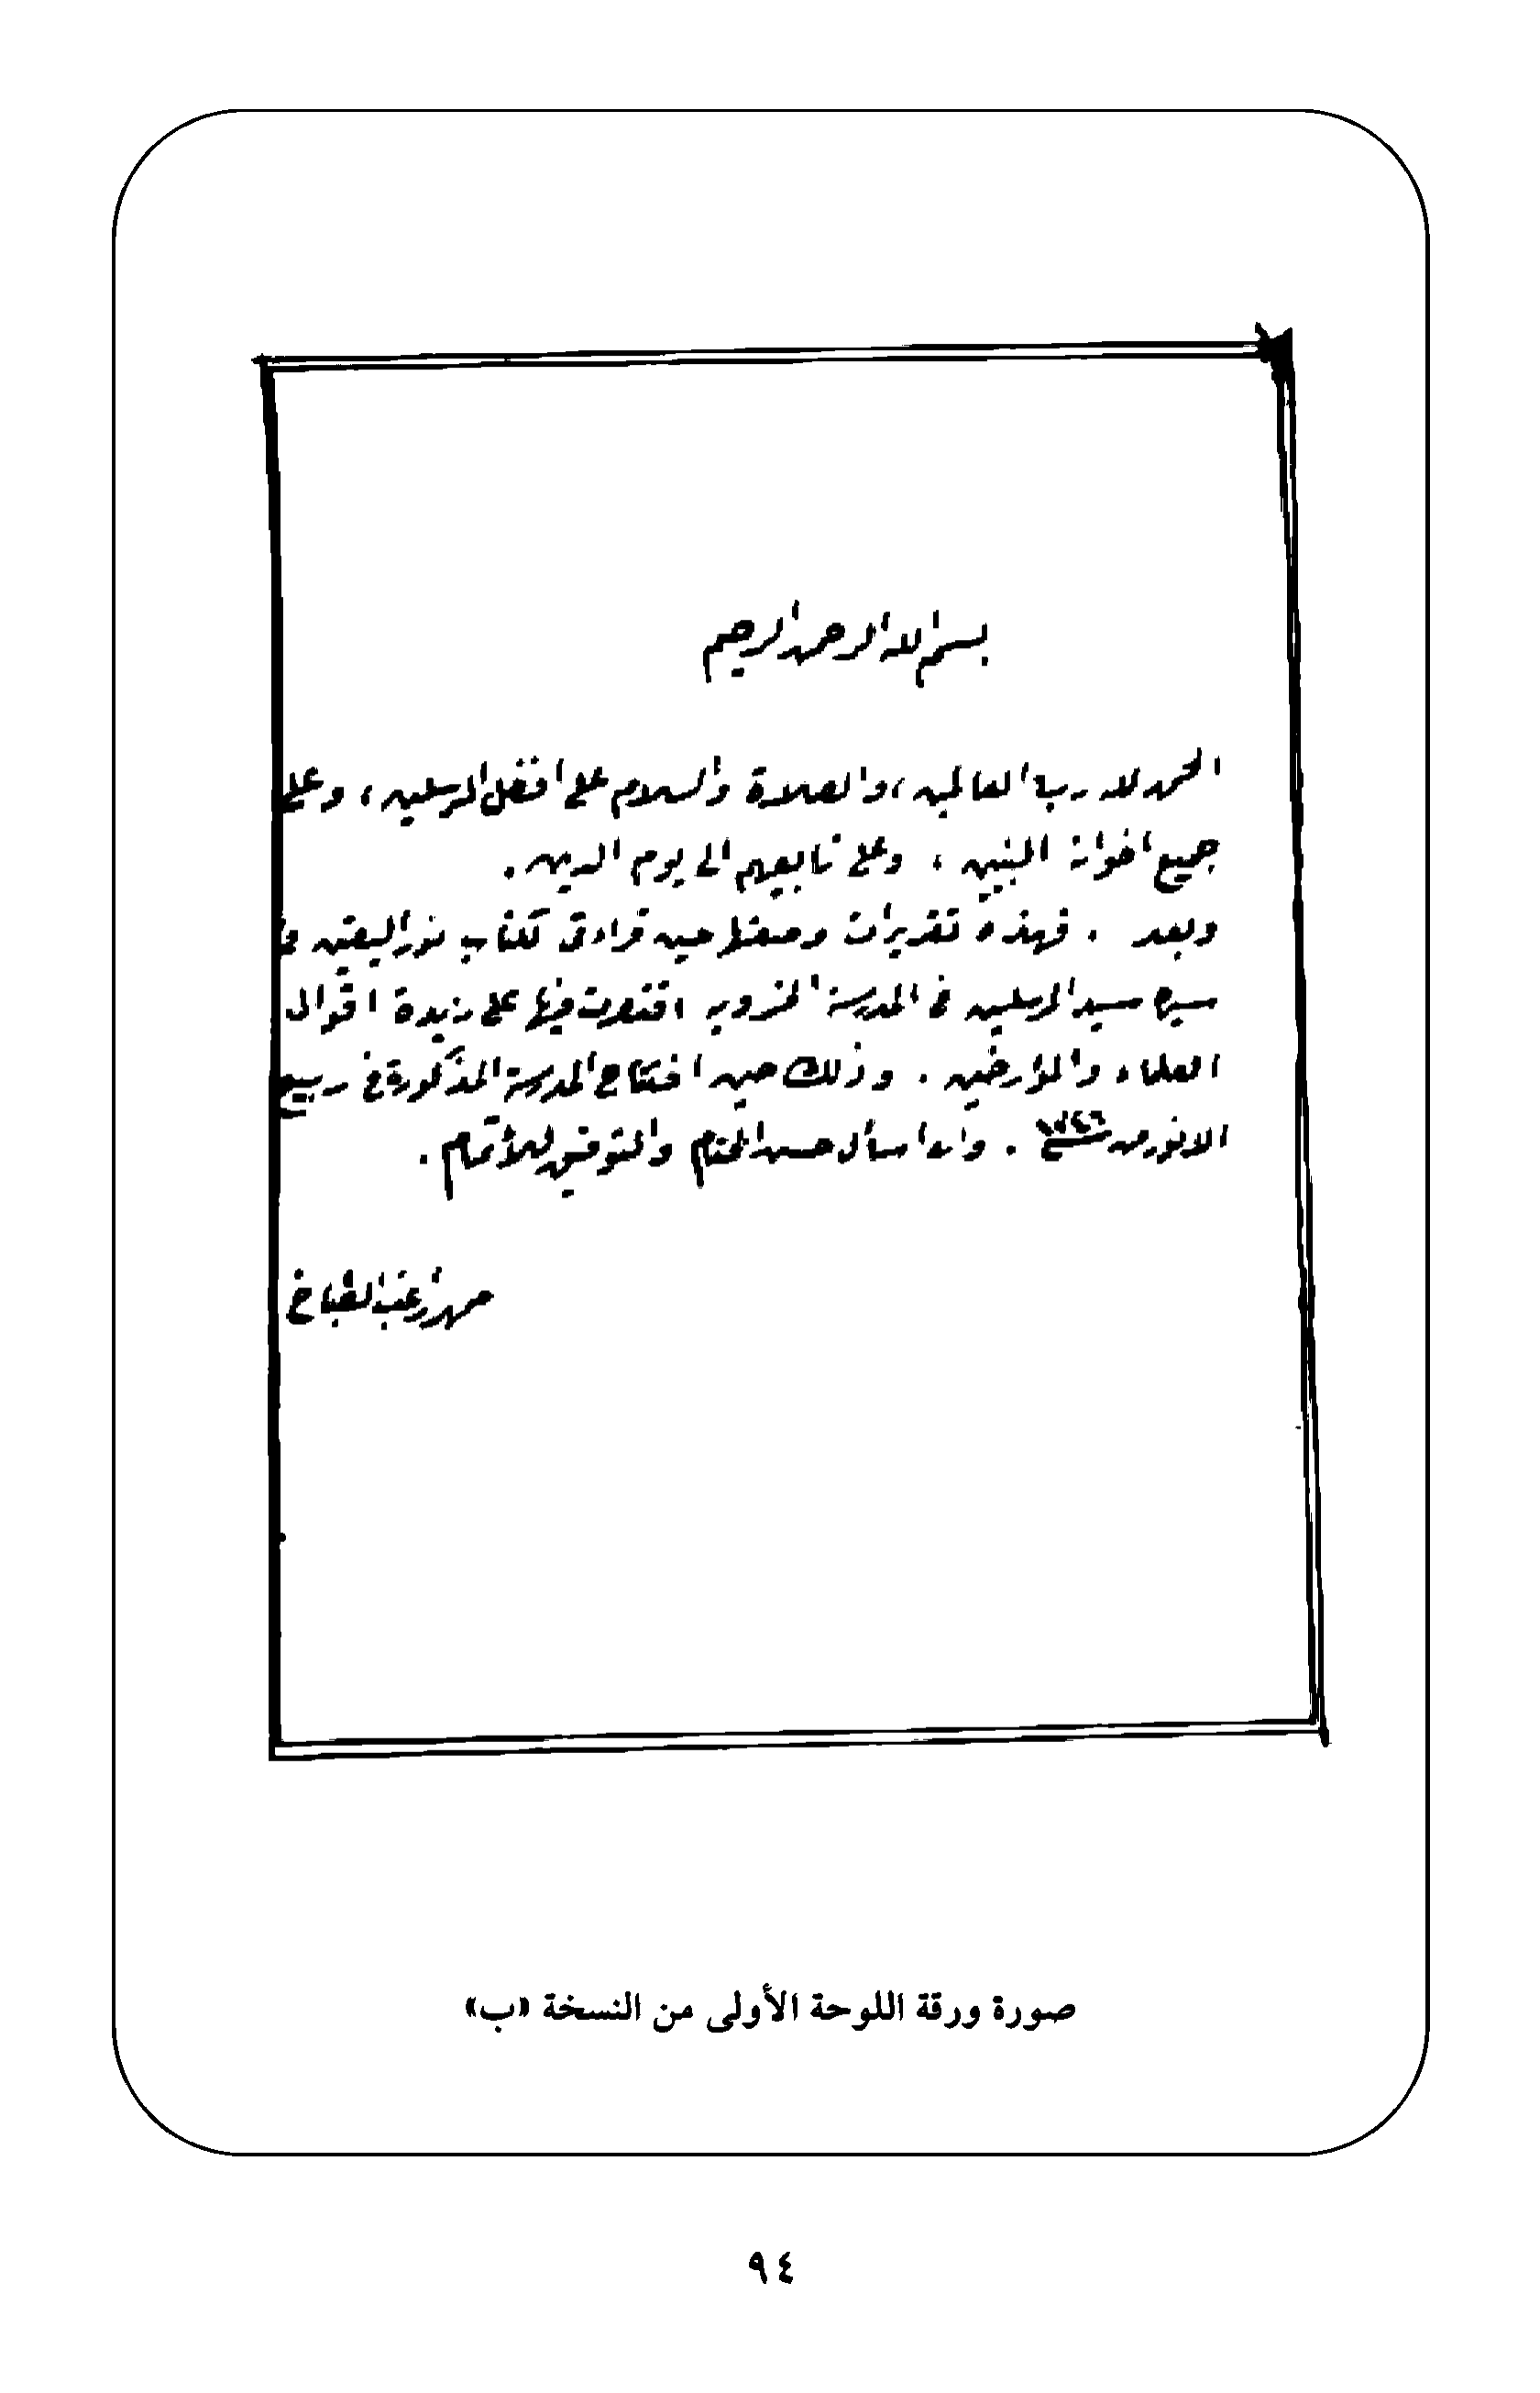 بسم الله الرحمن الرحيم
الحمد لله رب العالمين، والصلاة والسلام على افضل المرسلين، وعلى
جميع اخوانه النبيين، وعلى تابعيهم الى يوم الدين.
وبعد. فهذه تقريرات وضعتها حين قراءتي لكتاب نور اليقين في
سيرة سيد المرسلين في المدرسة الخسروية اقتصرت فيها على زبدة اقوال
العلماء والمؤرخين. وذلك حين افتتاح المدرسة المذكورة في ربيع
الانور من سنة. والله اسأل حسن الختام والتوفيق للأتمام.
محمد راغب الطباخ
صورة ورقة اللوحة الأولى من النسخة «ب»
٩٤